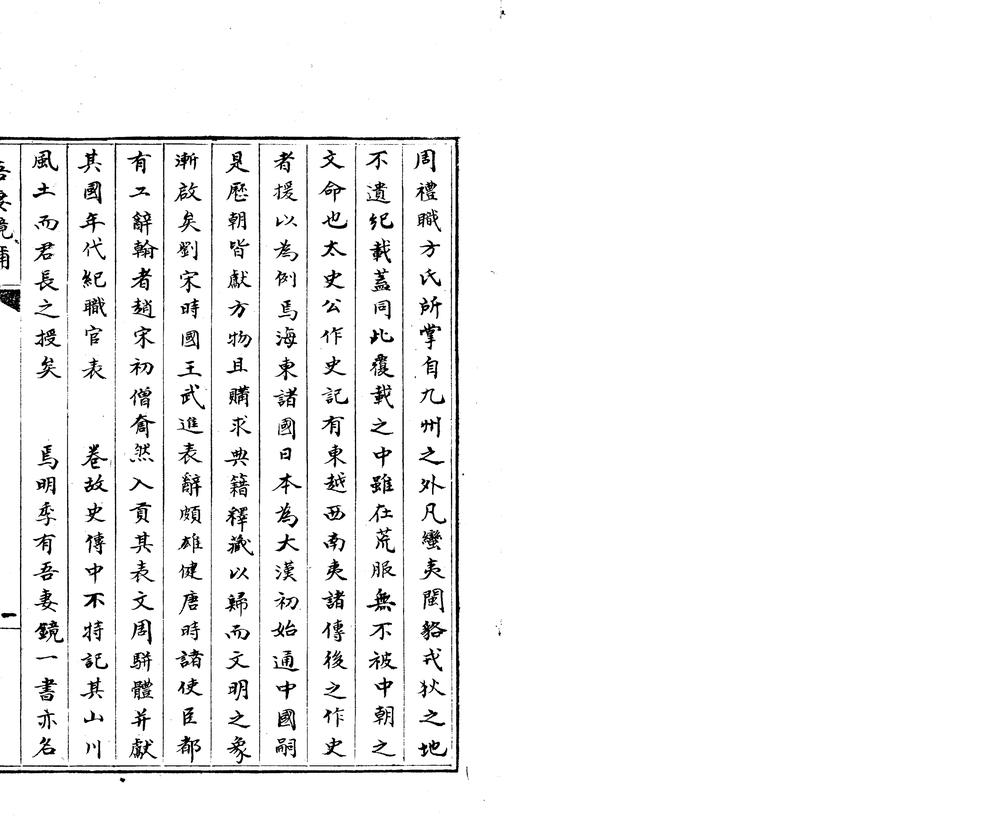 周禮職方氏所掌自九州之外凡蠻夷閩貉戎狄之地
不遺紀載蓋同此覆載之中雖在荒服無不被中朝之
文命也太史公作史記有東越西南夷諸傳後之作史
者援以為例焉海東諸國日本為大漢初始通中國嗣
是歷朝皆獻方物且購求典籍釋藏以歸而文明之象
漸啟矣劉宋時國王武進表辭頗雄健唐時諸使臣都
有工辭翰者趙宋初僧奝然入貢其表文周駢體并獻
其國年代紀職官表　　卷故史傳中不特記其山川
風土而君長之授矣　　焉明季有吾妻鏡一書亦名
吾妻鏡補
一